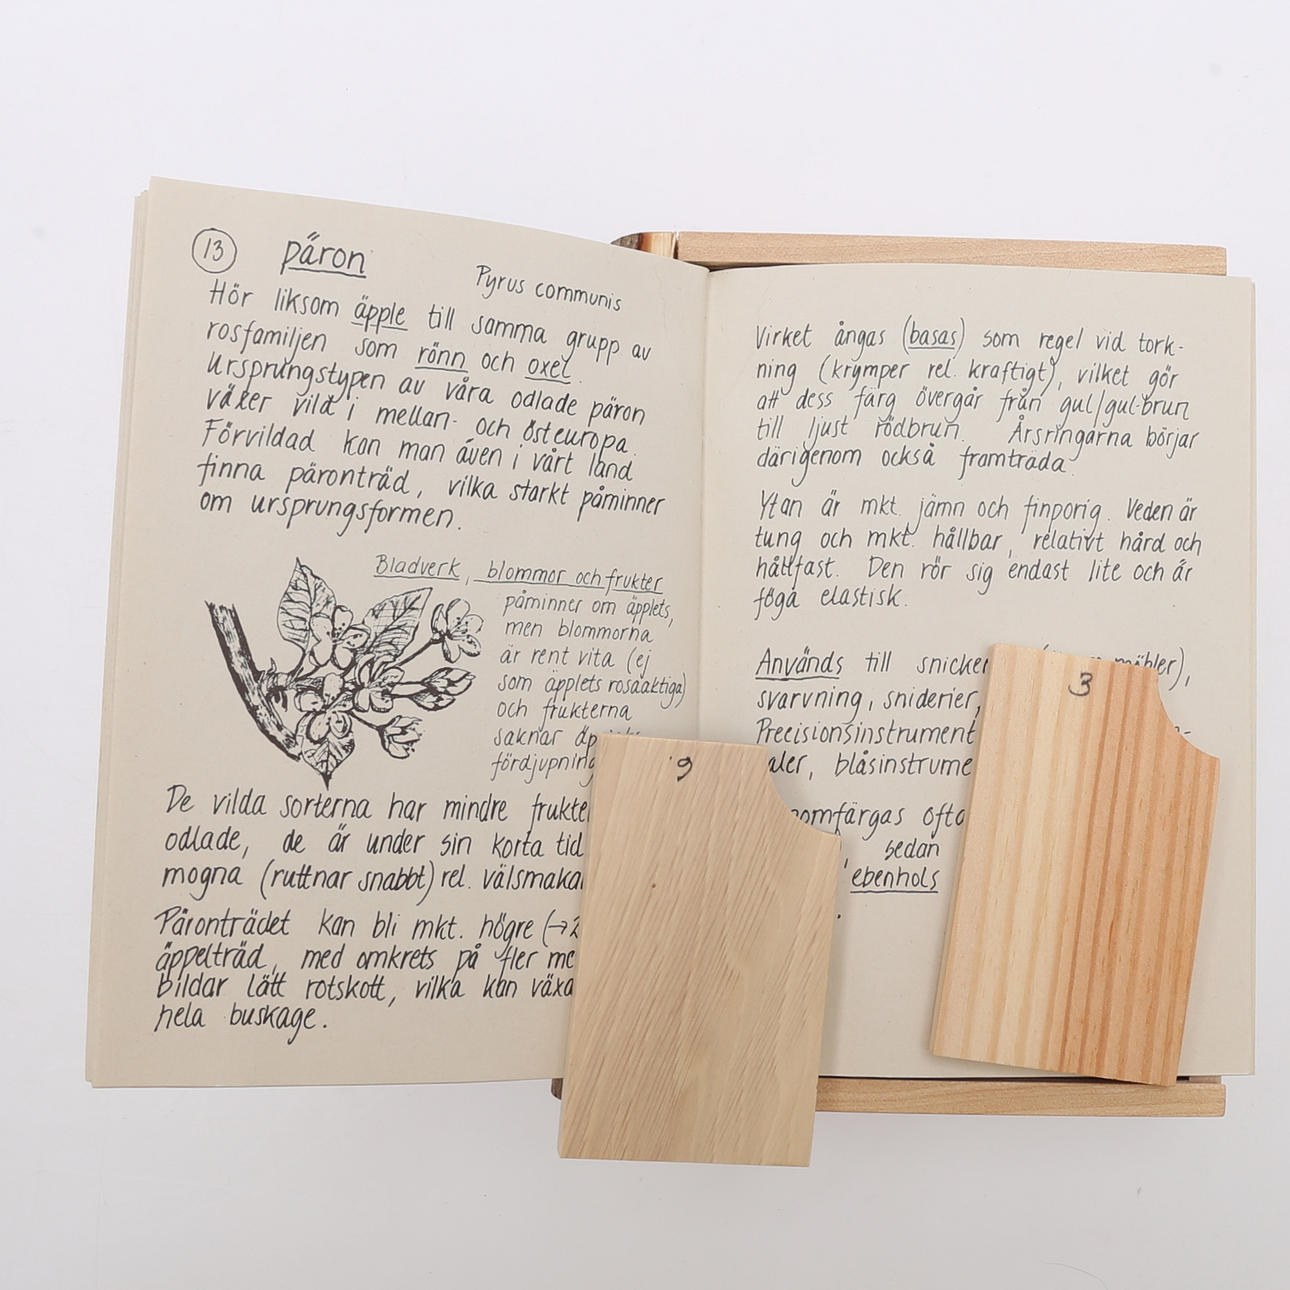 13 päron
Pyrus communis
Hör liksom äpple till samma grupp av
rosfamiljen som rönn och oxel.
Ursprungstypen av våra odlade päron
växer vild i mellan- och östeuropa.
Förvildad kan man även i vårt land
finna päronträd, vilka starkt påminner
om ursprungsformen.
Bladverk, blommor och frukter
påminner om äpplets,
men blommorna
är rent vita (ej
som äpplets rosaaktiga)
och frukterna
saknar
fördjupning
De vilda sorterna har mindre frukte
odlade, de är under sin korta tid
mogna (ruttnar snabbt) rel. välsmaka
Päronträdet kan bli mkt. högre (→2
äppelträd, med omkrets på fler me
bildar lätt rotskott, vilka kan växa
hela buskage.
Virket ångas (basas) som regel vid tork-
ning (krymper rel. kraftigt), vilket gör
att dess färg övergår från gul/gul-brun
till ljust rödbrun. Årsringarna börjar
därigenom också framträda.
Ytan är mkt. jämn och finporig. Veden är
tung och mkt. hållbar, relativt hård och
hållfast. Den rör sig endast lite och är
föga elastisk.
Används till snicker möbler),
svarvning, sniderier,
Precisionsinstrument
aler, blåsinstrume
omfärgas ofta
, sedan
ebenhols
.
9
3